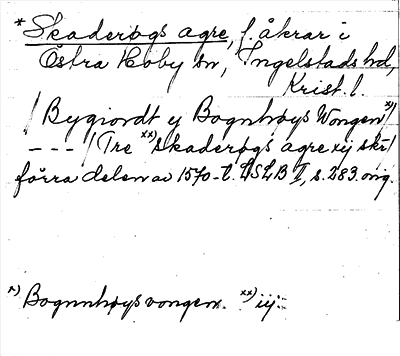 * Skaderøgs agre, f. åkrar i
Östra Hoby sn, Ingelstads hd,
Krist. l.
/ Bygiordt ij Bognhøys Wongen x) /
- - - / Tre xx) skaderøgs agre xij skr /
förra delen av 1570-t. LSLB II, s. 283. orig.
x) Bognnhøys vongenn. xx) iij.